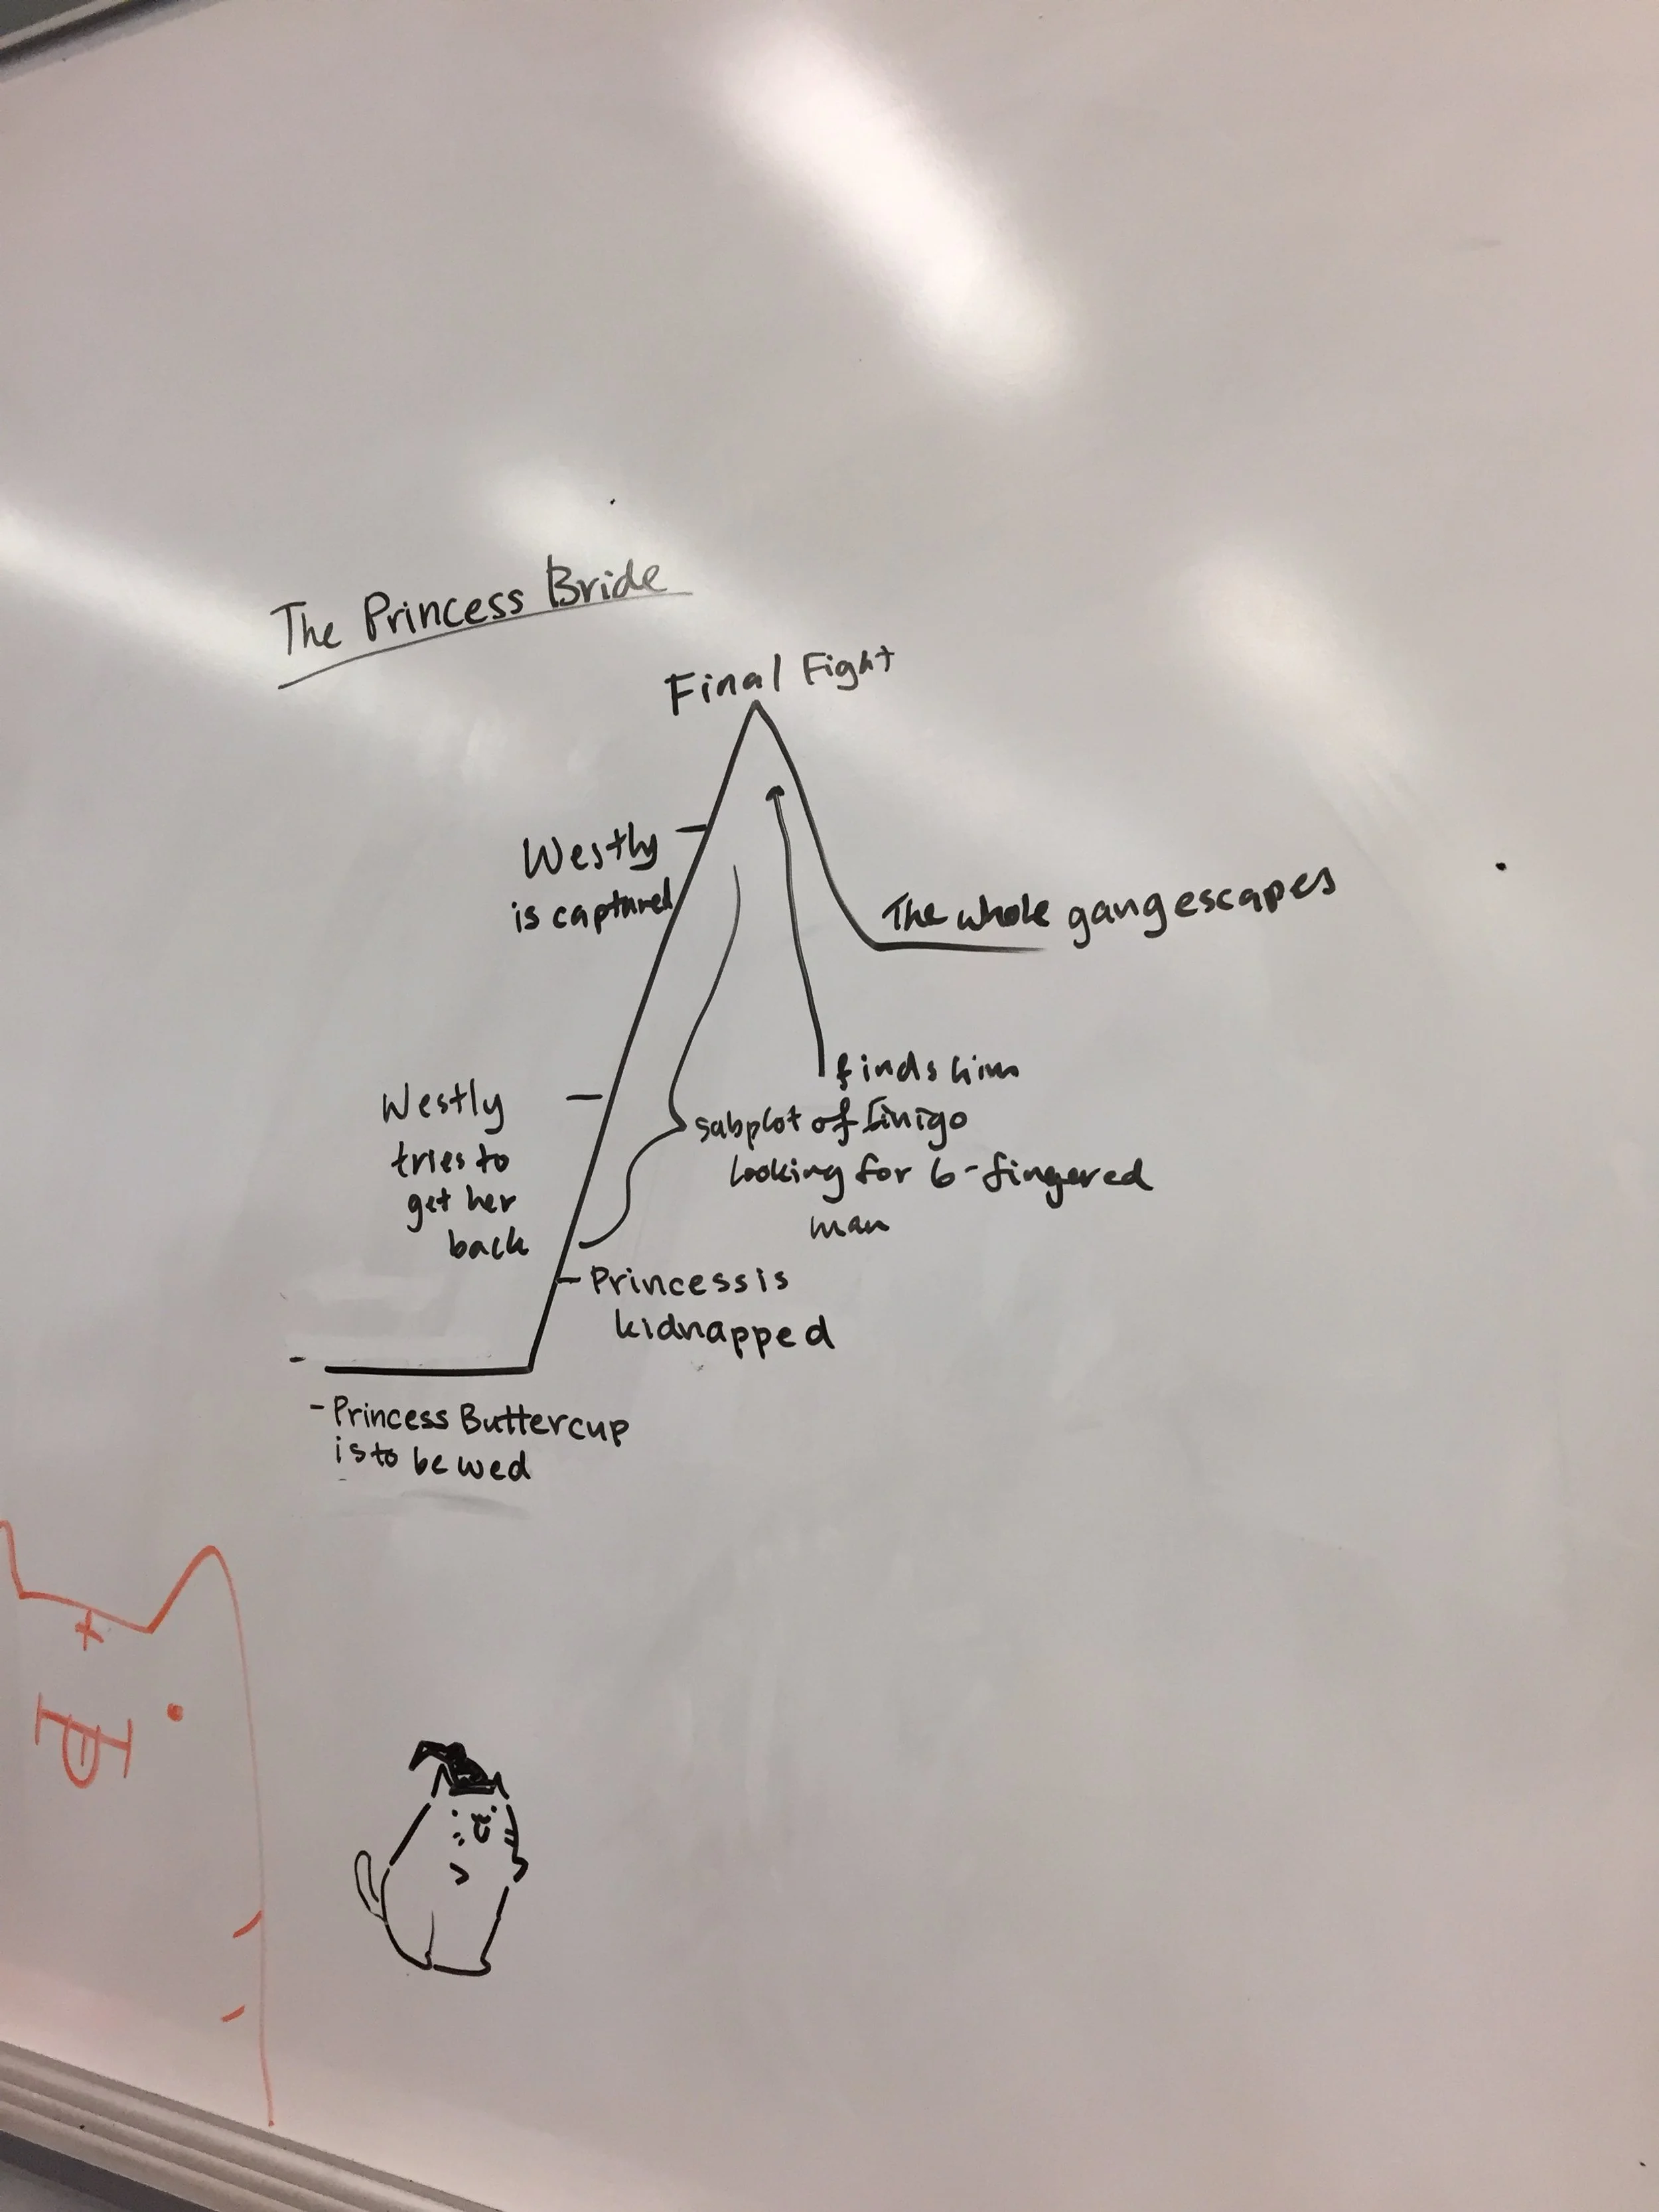 The Princess Bride
Final Fight
Westly
is captured
The whole gang escapes
finds him
Westly
tries to
get her
back
subplot of Inigo
looking for 6-fingered
man
- Princess is
kidnapped
- Princess Buttercup
is to be wed